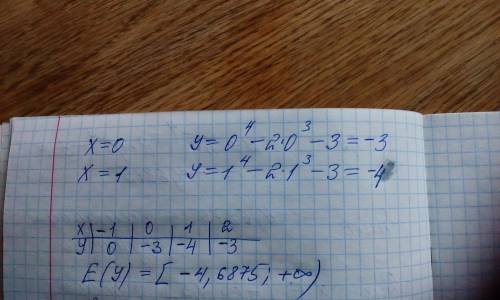 x=0 y=0⁴-2·0³-3=-3
x=1 y=1⁴-2·1³-3=-4
x | -1 | 0 | 1 | 2
y | 0 | -3 | -4 | -3
E(y) = [-4,6875; +∞)